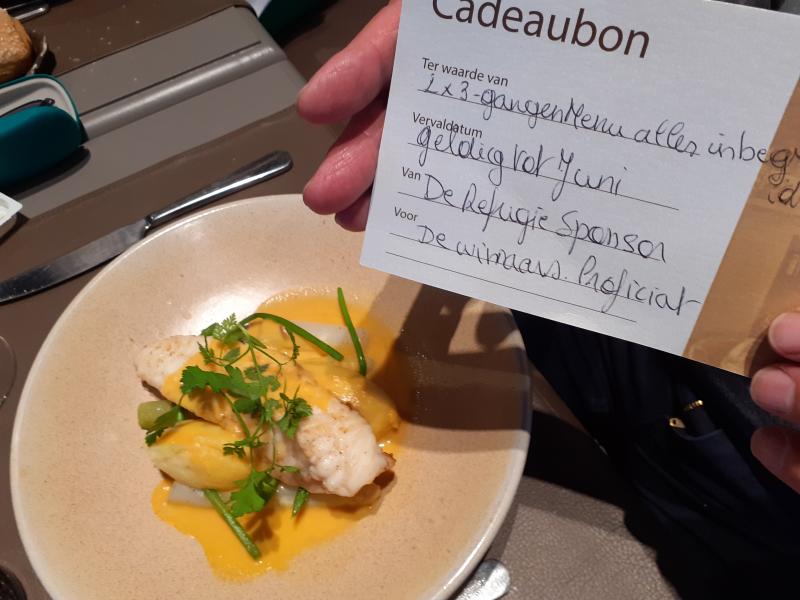 Cadeaubon
Ter waarde van
2x3-gangenMenu alles inbegr
Vervaldatum
geldig tot Juni
Van De Refugie Sponsor
Voor De winnaars. Proficiat